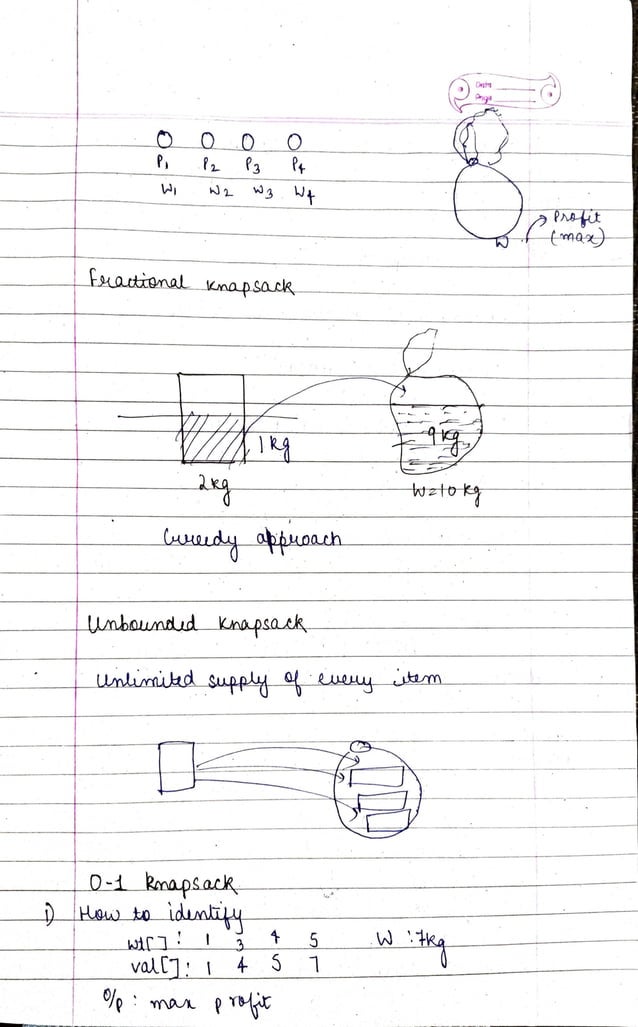 Date
Page
P1 P2 P3 P4
W1 W2 W3 W4
W
Profit
(max)
Fractional knapsack
1 kg
9 kg
2 kg
W=10 kg
Greedy approach
Unbounded knapsack
Unlimited supply of every item
0-1 knapsack
1) How to identify
wt[ ] : 1 3 4 5 W : 7kg
val[ ] : 1 4 5 7
O/p : max profit